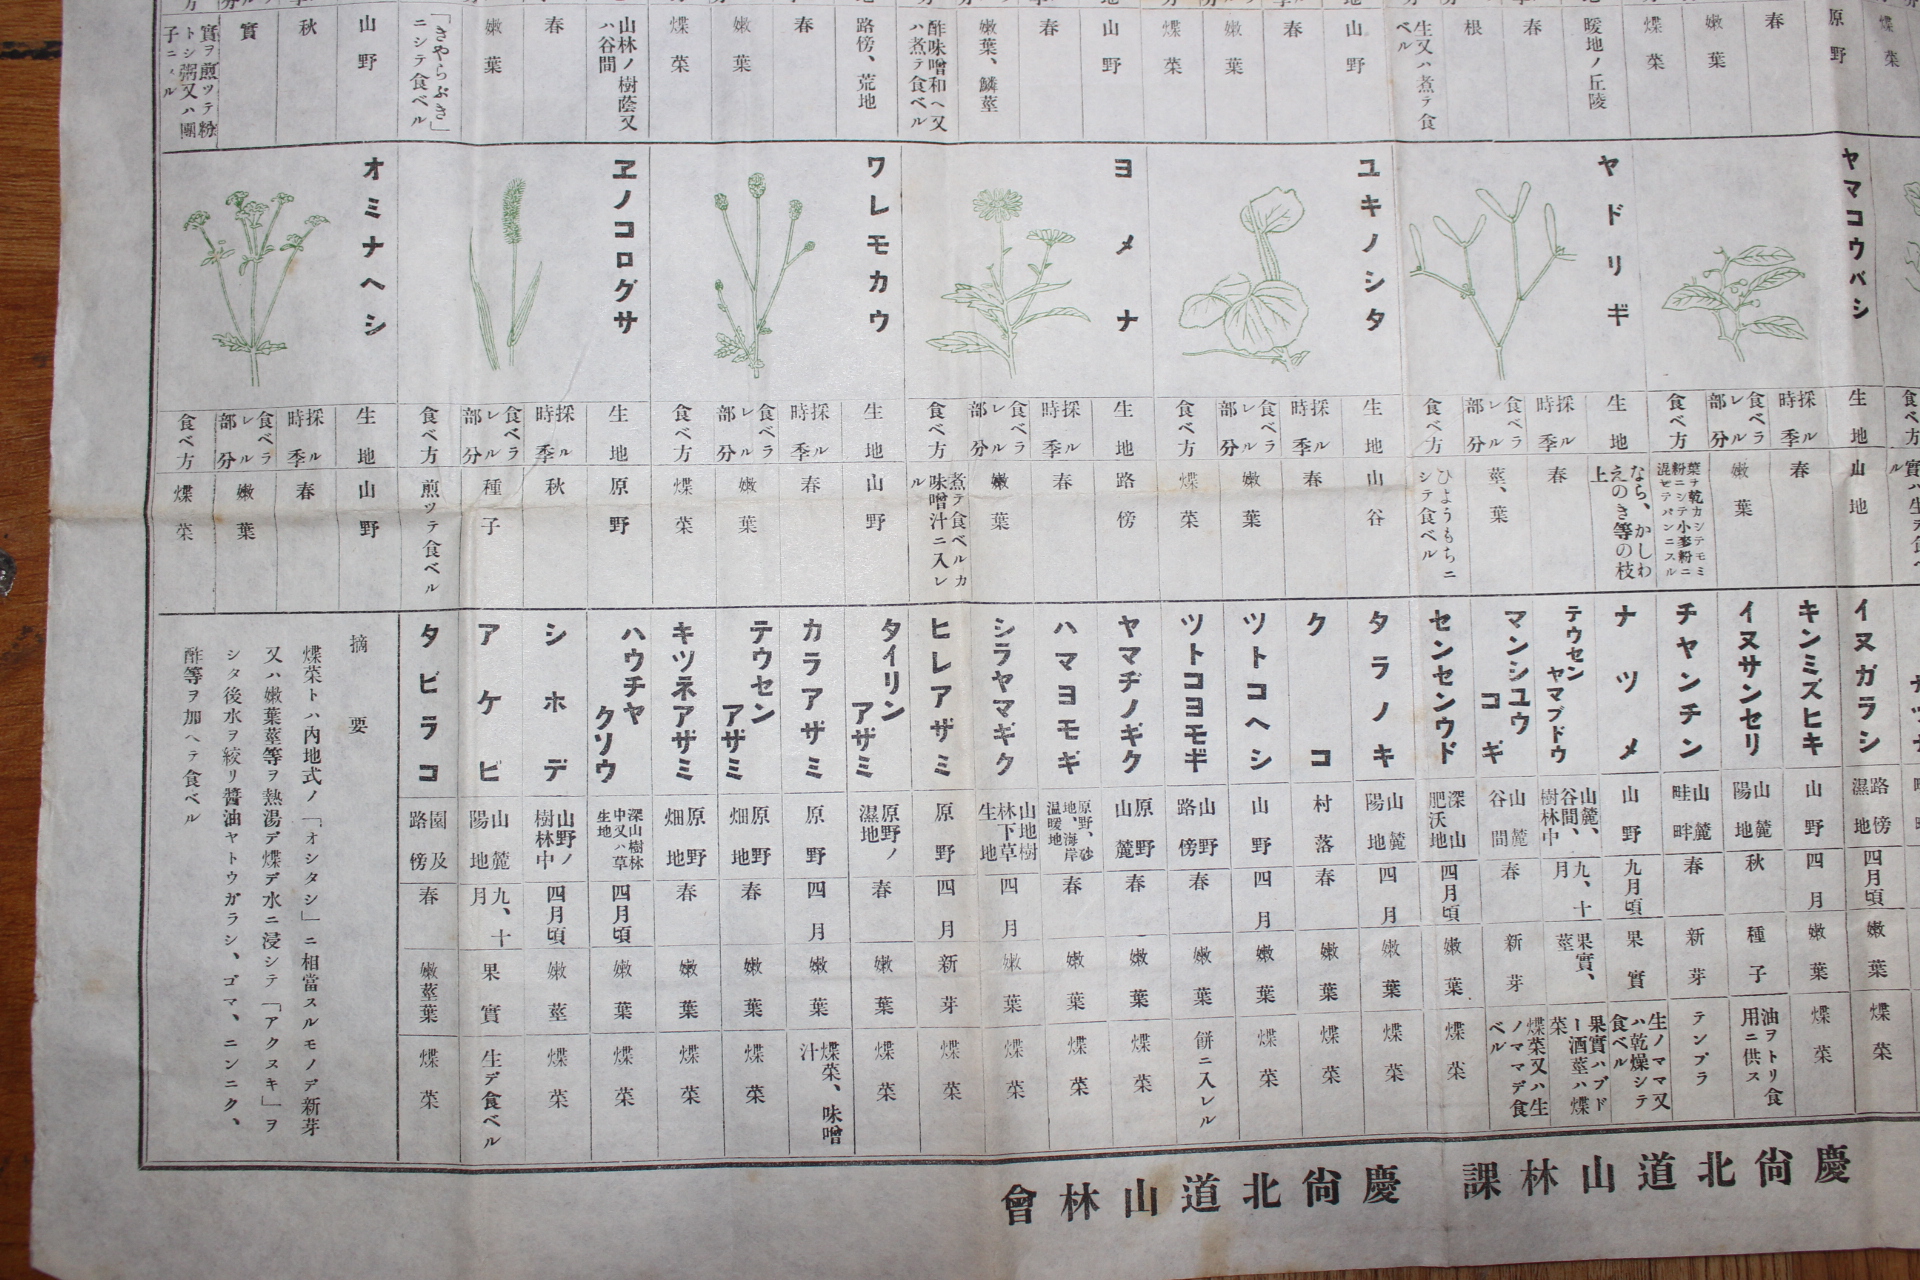 原野
煠菜
春
嫩葉
煠菜
暖地ノ丘陵
春
根
生又ハ煮テ食
ベル
山野
春
嫩葉
煠菜
山野
春
嫩葉、鱗莖
酢味噌和ヘ又
ハ煮テ食ベル
路傍、荒地
春
嫩葉
煠菜
山林ノ樹蔭又
ハ谷間
春
嫩葉
「きやらぶき」
ニシテ食ベル
山野
秋
實
實ヲ煎ツテ粉
トシ粥又ハ團
子ニスル
ヤマコウバシ
生地
山地
採ル時季
春
食ベラレル部分
嫩葉
食ベ方
葉ヲ乾カシテモミ
粉ニシテ小麥粉ニ
混ゼテパンニスル
ヤドリギ
生地
なら、かしわ
えのき等の枝
上
採ル時季
春
食ベラレル部分
莖、葉
食ベ方
ひようもちニ
シテ食ベル
ユキノシタ
生地
山谷
採ル時季
春
食ベラレル部分
嫩葉
食ベ方
煠菜
ヨメナ
生地
路傍
採ル時季
春
食ベラレル部分
嫩葉
食ベ方
煮テ食ベルカ
味噌汁ニ入レ
ル
ワレモカウ
生地
山野
採ル時季
春
食ベラレル部分
嫩葉
食ベ方
煠菜
ヱノコログサ
生地
原野
採ル時季
秋
食ベラレル部分
種子
食ベ方
煎ツテ食ベル
オミナヘシ
生地
山野
採ル時季
春
食ベラレル部分
嫩葉
食ベ方
煠菜
イヌガラシ
路傍濕地
四月頃
嫩葉
煠菜
キンミズヒキ
山野
四月
嫩葉
煠菜
イヌサンセリ
山麓陽地
秋
種子
油ヲトリ食
用ニ供ス
チヤンチン
山麓畦畔
春
新芽
テンプラ
ナツメ
山野
九月頃
果實
生ノママ又
ハ乾燥シテ
食ベル
テウセンヤマブドウ
山麓、谷間、樹林中
九、十月
果實、莖
果實ハブド
ー酒莖ハ煠
菜
マンシユウコギ
山麓谷間
春
新芽
煠菜又ハ生
ノママデ食
ベル
センセンウド
深山肥沃地
四月頃
嫩葉
煠菜
タラノキ
山麓陽地
四月
嫩葉
煠菜
クコ
村落
春
嫩葉
煠菜
ツトコヘシ
山野
四月
嫩葉
煠菜
ツトコヨモギ
山野路傍
春
嫩葉
餅ニ入レル
ヤマヂノギク
原野山麓
春
嫩葉
煠菜
ハマヨモギ
原野、砂地、海岸温暖地
春
嫩葉
煠菜
シラヤマギク
山地樹林下草生地
四月
嫩葉
煠菜
ヒレアザミ
原野
四月
新芽
煠菜
タイリンアザミ
原野ノ濕地
春
嫩葉
煠菜
カラアザミ
原野
四月
嫩葉
煠菜、味噌汁
テウセンアザミ
原野畑地
春
嫩葉
煠菜
キツネアザミ
原野畑地
春
嫩葉
煠菜
ハウチヤクソウ
深山樹林中又ハ草生地
四月頃
嫩葉
煠菜
シホデ
山野ノ樹林中
四月頃
嫩莖
煠菜
アケビ
山麓陽地
九、十月
果實
生デ食ベル
タビラコ
園及路傍
春
嫩莖葉
煠菜
摘要
煠菜トハ内地式ノ「オシタシ」ニ相當スルモノデ新芽
又ハ嫩葉莖等ヲ熱湯デ煠デ水ニ浸シテ「アクヌキ」ヲ
シタ後水ヲ絞リ醬油ヤトウガラシ、ゴマ、ニンニク、
酢等ヲ加ヘテ食ベル
慶尙北道山林課
慶尙北道山林會